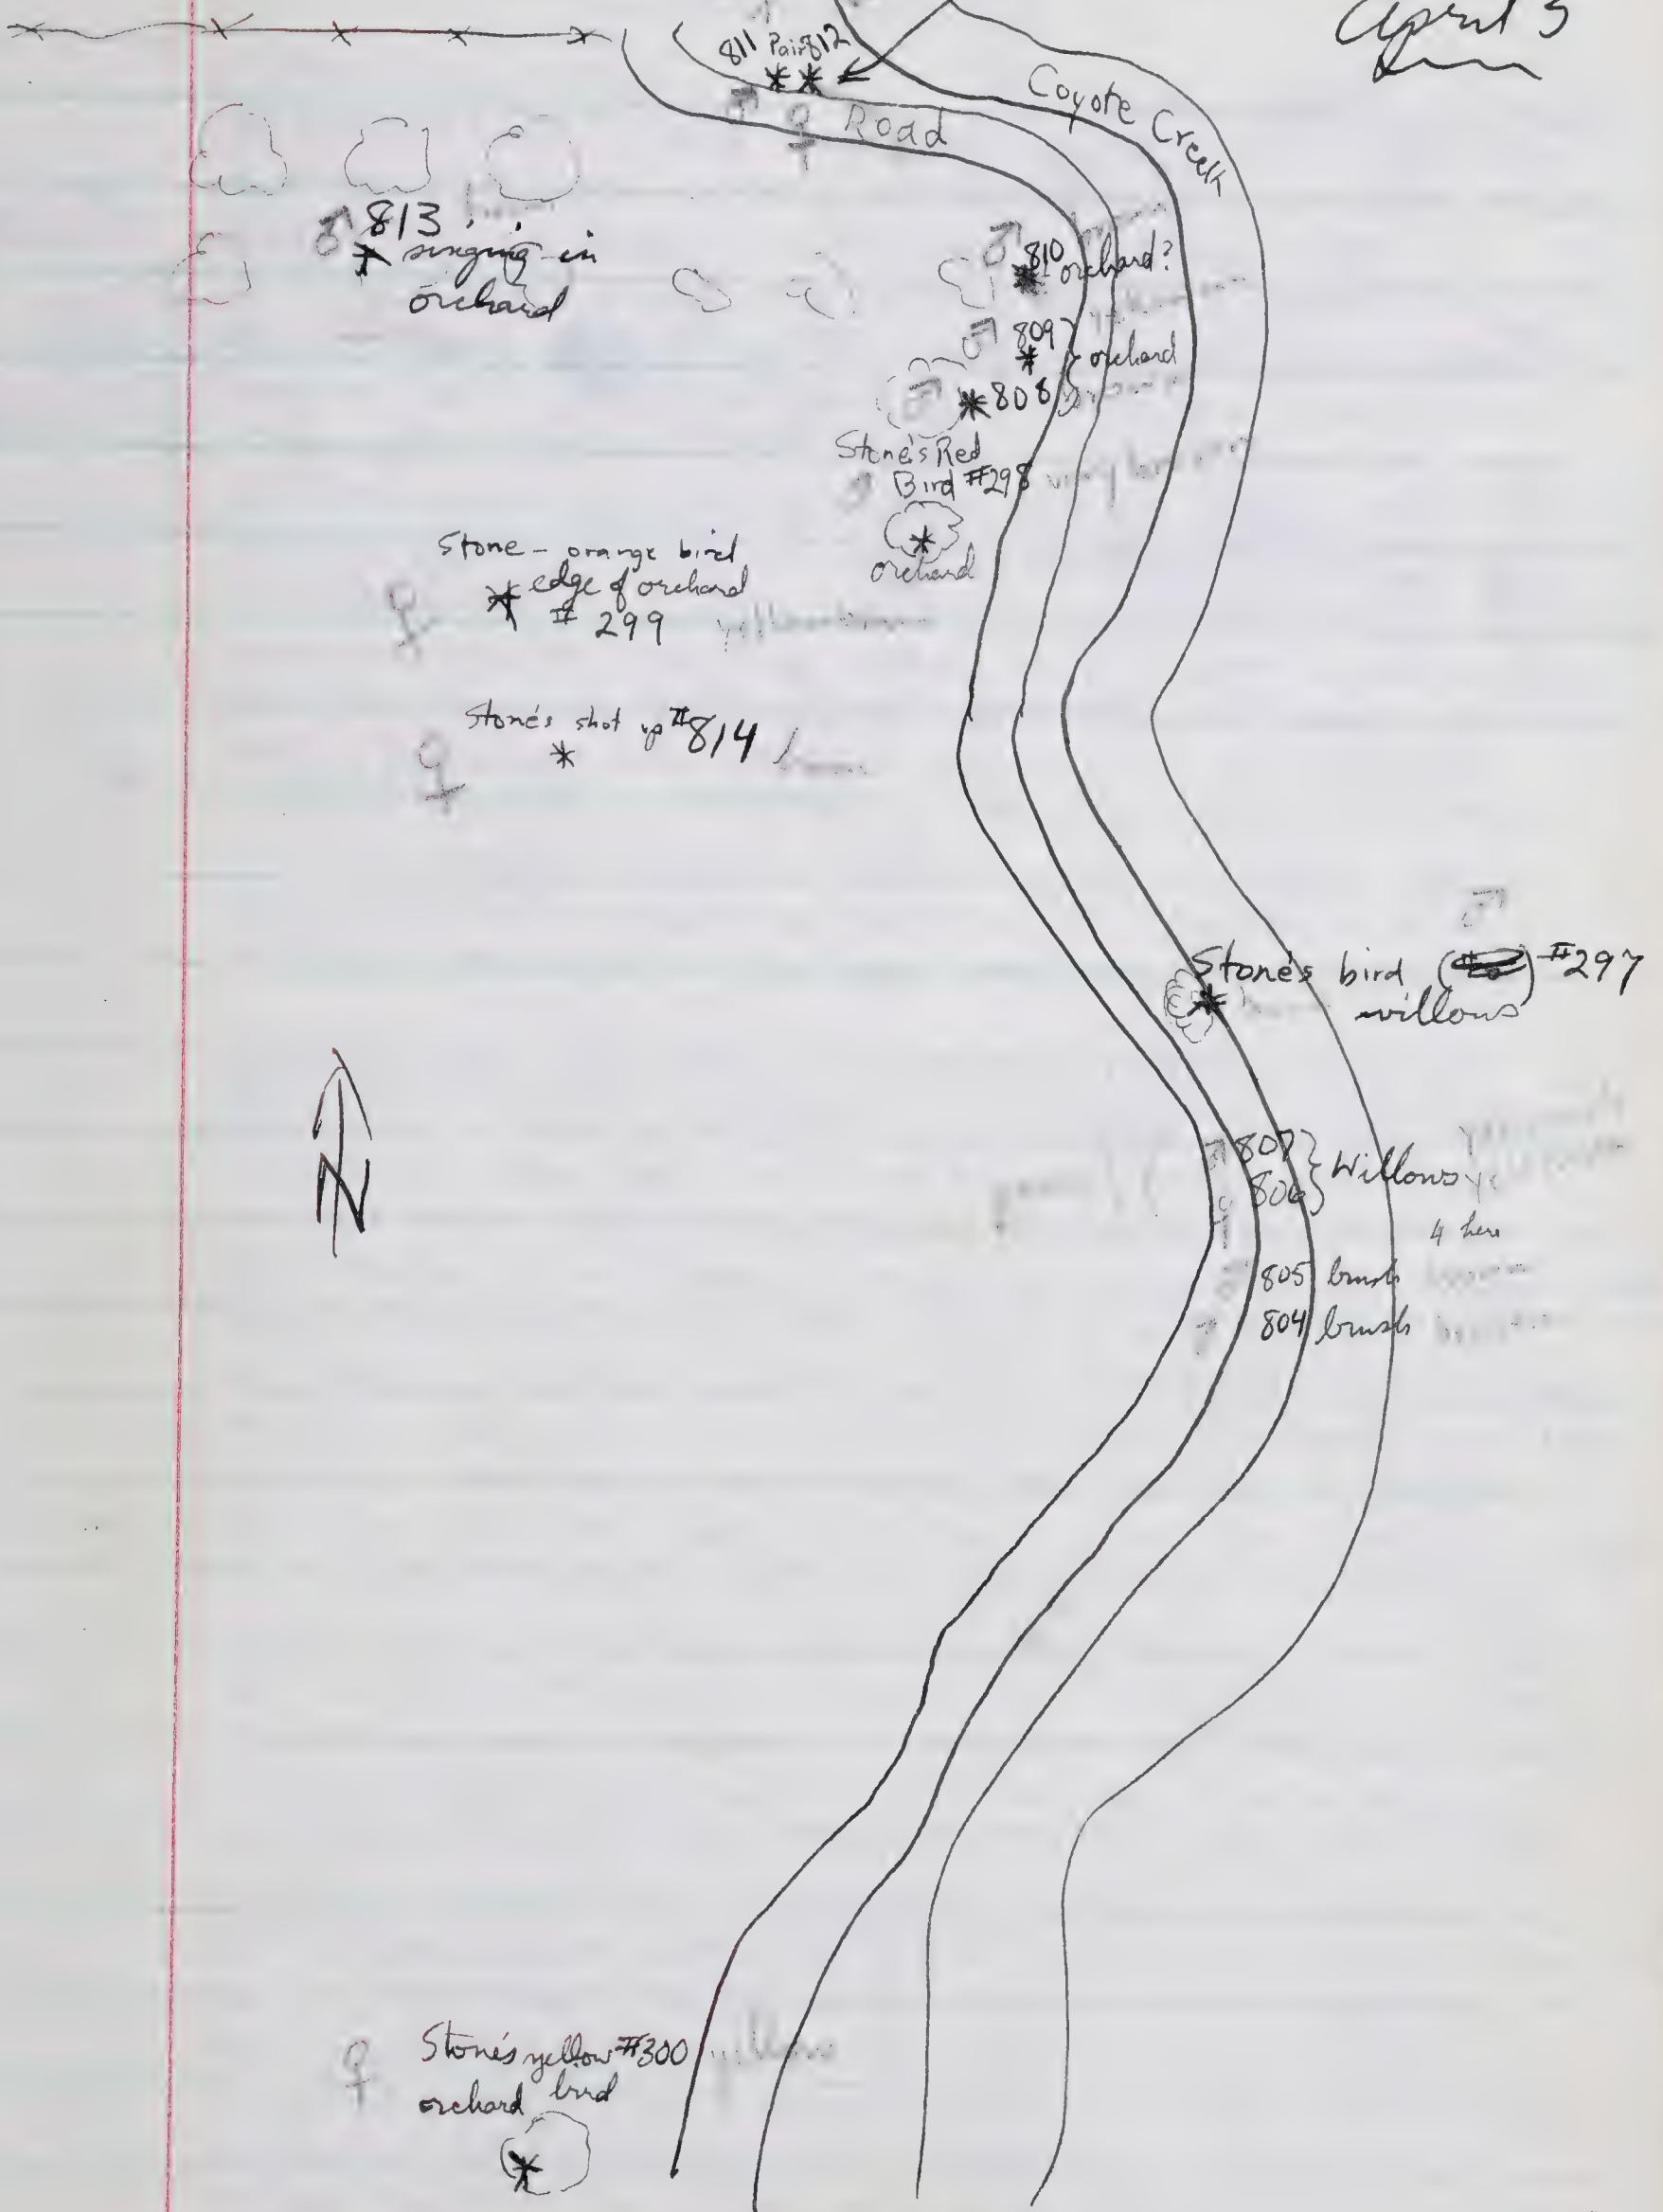 April 3
811 Pair 812
♂ ♀
Road
Coyote Creek
♂ 813
singing in
orchard
♂ 810
orchard?
♂ 809
orchard
♂ 808
Stone's Red
♂ Bird #298 very brown
orchard
Stone - orange bird
♀ edge of orchard
# 299
Stone's shot up #814
♀
♂
Stone's bird #297
willows
♂ 807
806 Willows
4 here
805 brush
804 brush
N
♀ Stone's yellow #300 yellow
orchard bird